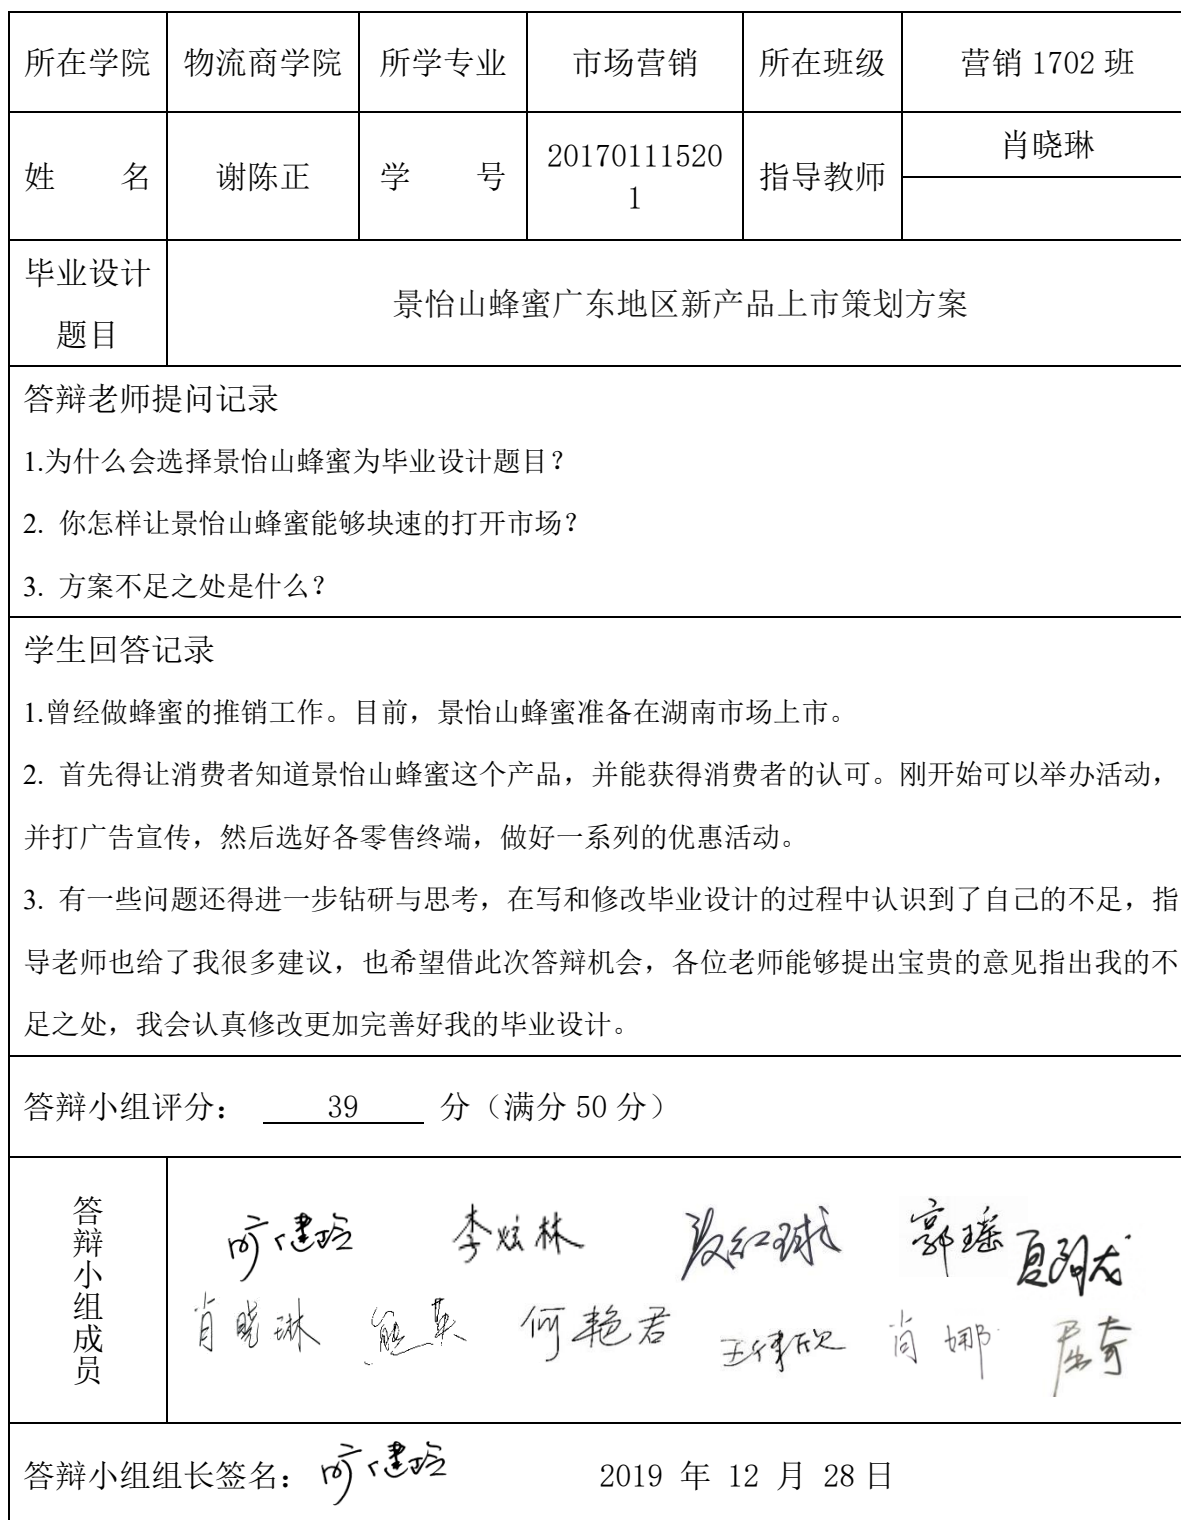 所在学院 物流商学院 所学专业 市场营销 所在班级 营销 1702 班
姓 名 谢陈正 学 号 20170111520
1 指导教师 肖晓琳
毕业设计
题目 景怡山蜂蜜广东地区新产品上市策划方案
答辩老师提问记录
1.为什么会选择景怡山蜂蜜为毕业设计题目?
2. 你怎样让景怡山蜂蜜能够块速的打开市场?
3. 方案不足之处是什么?
学生回答记录
1.曾经做蜂蜜的推销工作。目前，景怡山蜂蜜准备在湖南市场上市。
2. 首先得让消费者知道景怡山蜂蜜这个产品，并能获得消费者的认可。刚开始可以举办活动，
并打广告宣传，然后选好各零售终端，做好一系列的优惠活动。
3. 有一些问题还得进一步钻研与思考，在写和修改毕业设计的过程中认识到了自己的不足，指
导老师也给了我很多建议，也希望借此次答辩机会，各位老师能够提出宝贵的意见指出我的不
足之处，我会认真修改更加完善好我的毕业设计。
答辩小组评分： 39 分（满分 50 分）
答辩小组成员
李炫林 郭瑶
肖晓琳 熊英 何艳君 肖娜 屈奇
答辩小组组长签名： 2019 年 12 月 28 日